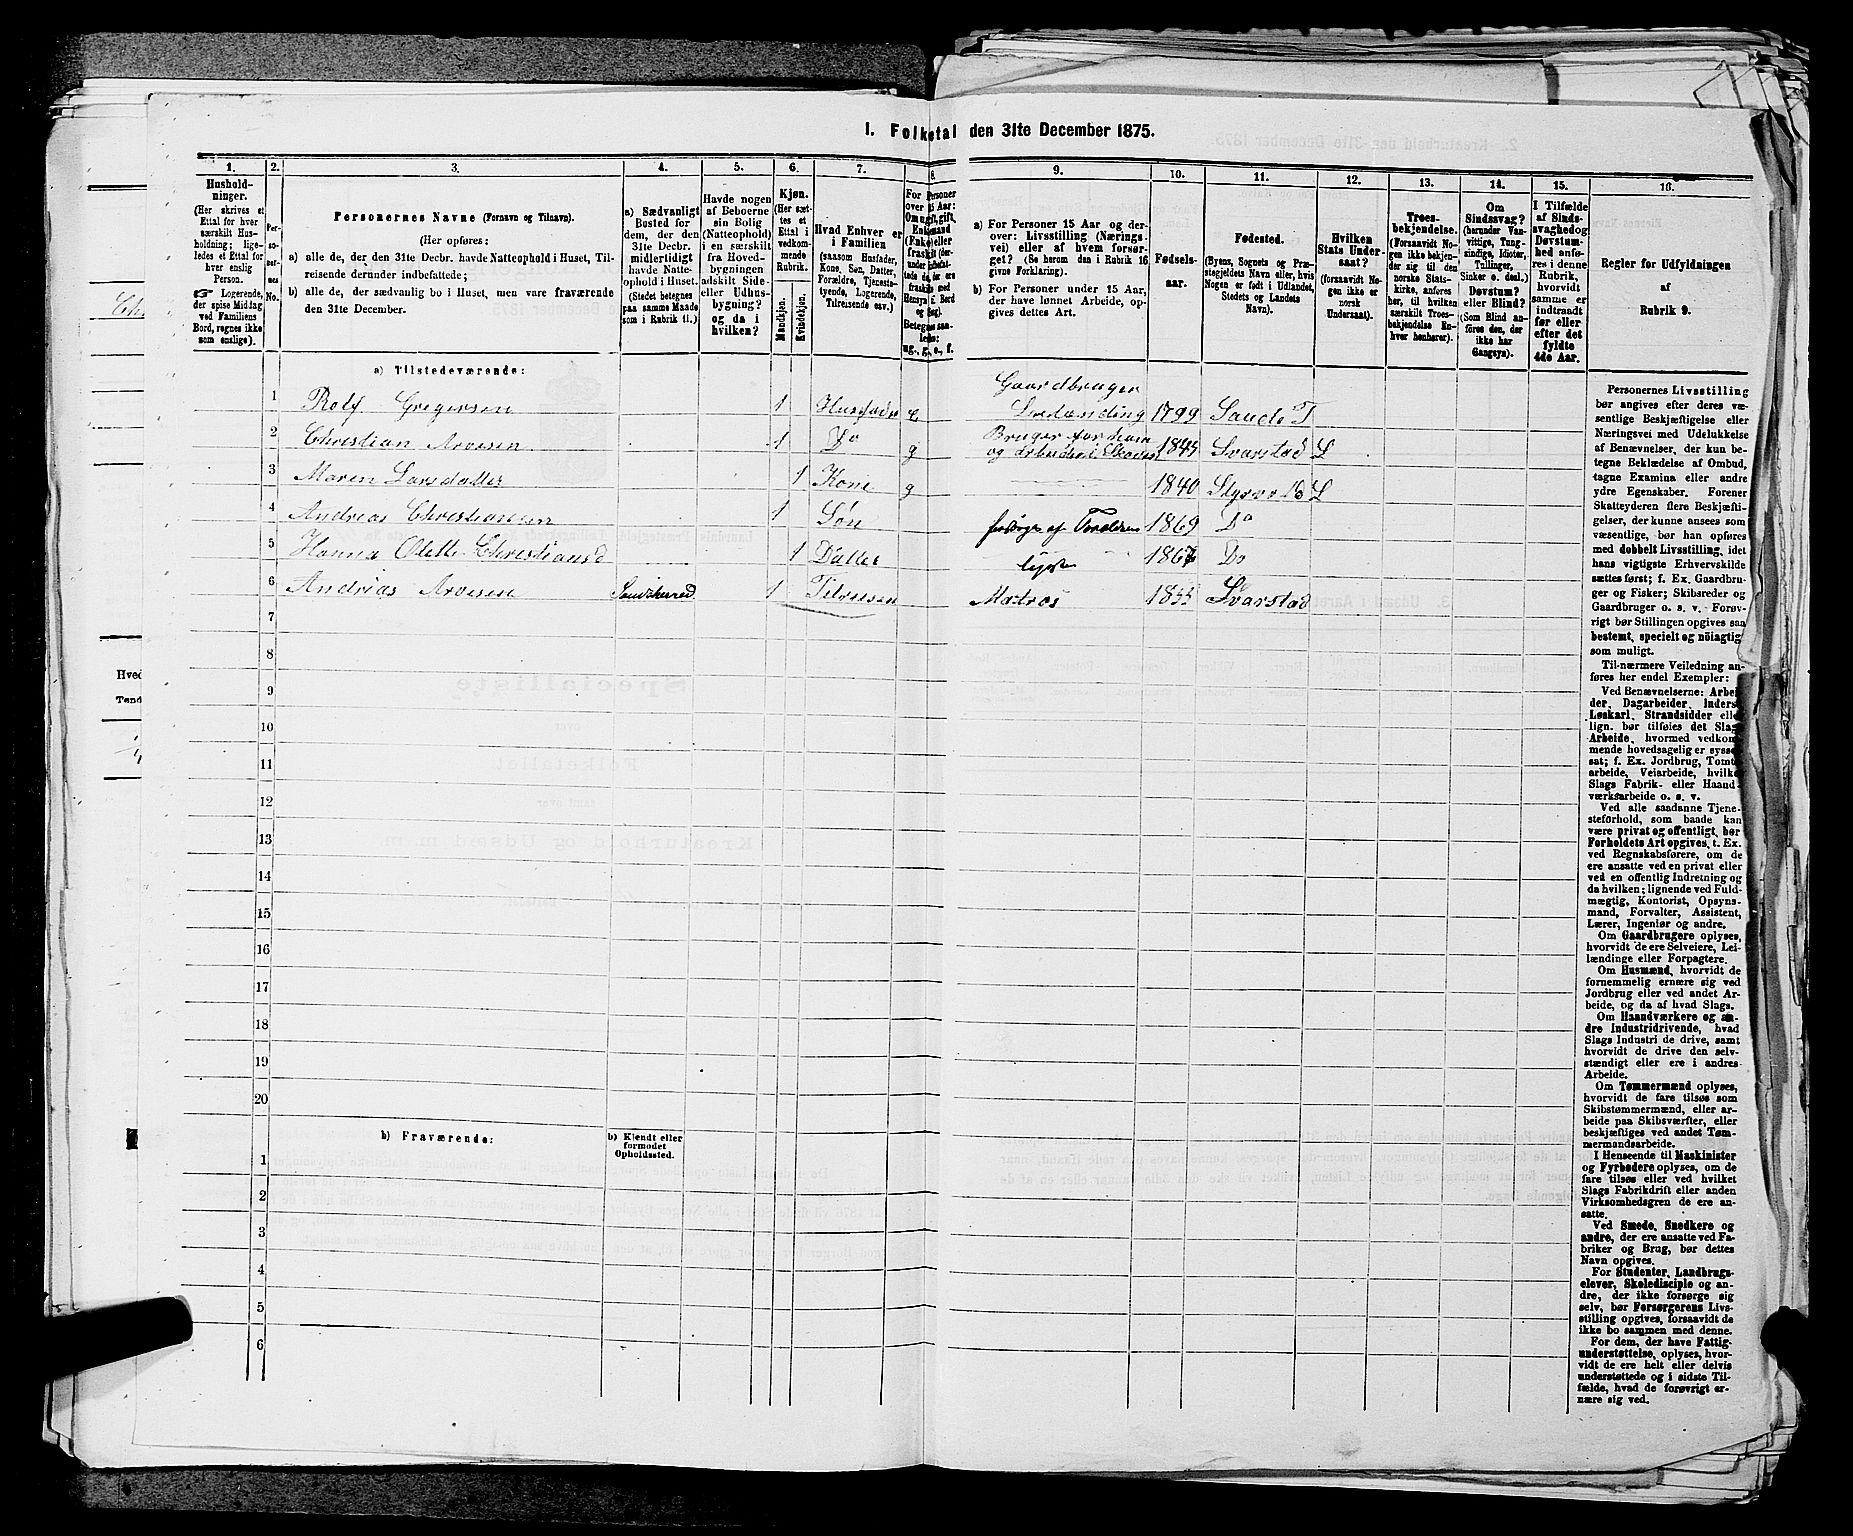 I. Folketal den 31te December 1875.
1. 2. 3. 4. 5. 6. 7. 8. 9. 10. 11. 12. 13. 14. 15. 16.
Hushold-
ninger.
(Her skrives et
Ettal for hver
særskilt Hus-
holdning; lige-
ledes et Ettal for
hver enslig
Person.
☞ Logerende,
der spise Middag
ved Familiens
Bord, regnes ikke
som enslige).
Per-
so-
ner-
nes
No.
Personernes Navne (Fornavn og Tilnavn).
(Her opføres:
a) alle de, der den 31te Decbr. havde Natteophold i Huset, Til-
reisende derunder indbefattede;
b) alle de, der sædvanlig bo i Huset, men vare fraværende
den 31te December.
a) Sædvanligt
Bosted for
dem, der den
31te Decbr.
midlertidigt
havde Natte-
ophold i Huset.
(Stedet betegnes
paa samme Maade
som i Rubrik 11.)
Havde nogen
af Beboerne
sin Bolig
(Natteophold)
i en særskilt
fra Hoved-
bygningen
adskilt Side-
eller Udhus-
bygning?
og da i
hvilken?
Kjøn.
(Her sæt-
tes et
Ettal i
vedkom-
mende
Rubrik.
Mandkjøn.
Kvindekjøn.
Hvad Enhver er
i Familien
(saasom Husfader,
Kone, Søn, Datter,
Forældre, Tjeneste-
tyende, Logerende,
Tilreisende osv.)
For Personer
over 15 Aar:
Om ugift, gift,
Enkemand
(Enke) eller
fraskilt
Betegnes saa-
ledes:
ug., g., e., f.
a) For Personer 15 Aar og der-
over: Livsstilling (Nærings-
vei) eller af hvem forsør-
get? (Se herom den i Rubrik 16
givne Forklaring).
b) For Personer under 15 Aar,
der have lønnet Arbeide, op-
gives dettes Art.
Fødsels-
aar.
Fødested.
(Byens, Sognets og Præs-
tegjeldets Navn eller, hvis
Nogen er født i Udlandet,
Stedets og Landets
Navn).
Hvilken
Stats Under-
saat?
(forsaavidt No-
gen ikke er
norsk
Undersaat).
Troes-
bekjendelse.
(Forsaavidt No-
gen ikke bekjen-
der sig til den
norske Stats-
kirke, anføres
her, til hvilken
særskilt Troes-
bekjendelse En-
hver henhører).
Om
Sindssvag?
(herunder Van-
vittige, Tung-
sindige, Idioter,
Tullinger,
Sinker o. desl.)
Døvstum?
eller Blind?
(Som Blind an-
føres den, der
ikke har
Gangsyn).
I Tilfælde
af Sinds-
svaghed og
Døvstum-
hed anfø-
res i denne
Rubrik,
hvorvidt
samme er
indtraadt
før eller
efter det
fyldte
4de Aar.
Regler for Udfyldningen
af
Rubrik 9.
a) Tilstedeværende:
1 Rolf Gregersen 1 Husfader e Gaardbruger 1799 Sande T
2 Christian Arvesen 1 Do g Bruger 1845 Svarstad L
3 Maren Larsdatter 1 Kone g 1840 L
4 Andreas Christiansen 1 Søn 1869 Do
5 Hanna Odette Christiansd 1 Datter 1867 Do
6 Andrias Arvesen 1 Tilreisen Matros 1855 Svarstad
7
8
9
10
11
12
13
14
15
16
17
18
19
20
b) Fraværende: b) Kjendt eller
formodet
Opholdssted.
1
2
3
4
5
6
Personernes Livsstilling
bør angives efter deres væ-
sentlige Beskjæftigelse eller
Næringsvei med Udelukkelse
af Benævnelser, der kun be-
tegne Beklædelse af Ombud,
tagne Examina eller andre
ydre Egenskaber. Forener
Skatteyderen flere Beskjæfti-
gelser, der kunne ansees som
væsentlige, bør han opføres
med dobbelt Livsstilling, idet
hans vigtigste Erhvervskilde
sættes først; f. Ex. Gaardbru-
ger og Fisker; Skibsreder og
Gaardbruger o. s. v. Forøv-
rigt bør Stillingen opgives saa
bestemt, specielt og nøiagtig
som muligt.
Til nærmere Veiledning an-
føres her endel Exempler:
Ved Benævnelserne: Arbei-
der, Dagarbeider, Inderst,
Løskarl, Strandsidder eller
lign. bør tilføies det Slags
Arbeide, hvormed vedkom-
mende hovedsagelig er syssel-
sat; f. Ex. Jordbrug, Tomte-
arbeide, Veiarbeide, hvilket
Slags Fabrik- eller Haand-
værksarbeide o. s. v.
Ved alle saadanne Tjene-
steforhold, som baade kan
være privat og offentligt, bør
Forholdets Art opgives, t. Ex.
ved Regnskabsførere, om de
ere ansatte ved en privat eller
ved en offentlig Indretning og
da hvilken; lignende ved Fuld-
mægtig, Kontorist, Opsyns-
mand, Forvalter, Assistent,
Lærer, Ingeniør og andre.
Om Gaardbrugere oplyses,
hvorvidt de ere Selveiere, Lei-
lændinge eller Forpagtere.
Om Husmænd, hvorvidt de
fornemmelig ernære sig ved
Jordbrug eller ved andet Ar-
beide, og da af hvad Slags.
Om Haandværkere og an-
dre Industridrivende, hvad
Slags Industri de drive, samt
hvorvidt de drive den selv-
stændigt eller ere i andres
Arbeide.
Om Tømmermænd oplyses,
hvorvidt de fare tilsøs som
Skibstømmermænd, eller ar-
beide paa Skibsværfter, eller
beskjæftiges ved andet Tøm-
mermandsarbeide.
I Henseende til Maskinister
og Fyrbødere oplyses, om de
fare tilsøs eller ved hvilket
Slags Fabrikdrift eller anden
Virksomhedsgren de ere an-
satte.
Ved Smede, Snedkere og
andre, der ere ansatte ved Fa-
briker og Brug, bør dettes
Navn opgives.
For Studenter, Landbrugs-
elever, Skoledisciple og an-
dre, der ikke forsørge sig
selv, bør Forsørgerens Livs-
stilling opgives, forsaavidt de
ikke bo sammen med denne.
For dem, der have Fattig-
understøttelse, oplyses, hvor-
vidt de ere helt eller delvis
understøttede og i sidste Til-
fælde, hvad de forøvrigt er-
nære sig ved.